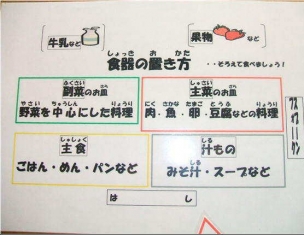 牛乳など
果物 など
しょっき お かた
食器の置き方
・・そろえて食べましょう！
ふくさい さら
副菜のお皿
やさい ちゅうしん りょうり
野菜を中心にした料理
しゅさい さら
主菜のお皿
にく さかな たまご とうふ りょうり
肉・魚・卵・豆腐などの料理
しゅしょく
主食
ごはん・めん・パンなど
しる
汁もの
みそ汁・スープなど
は し